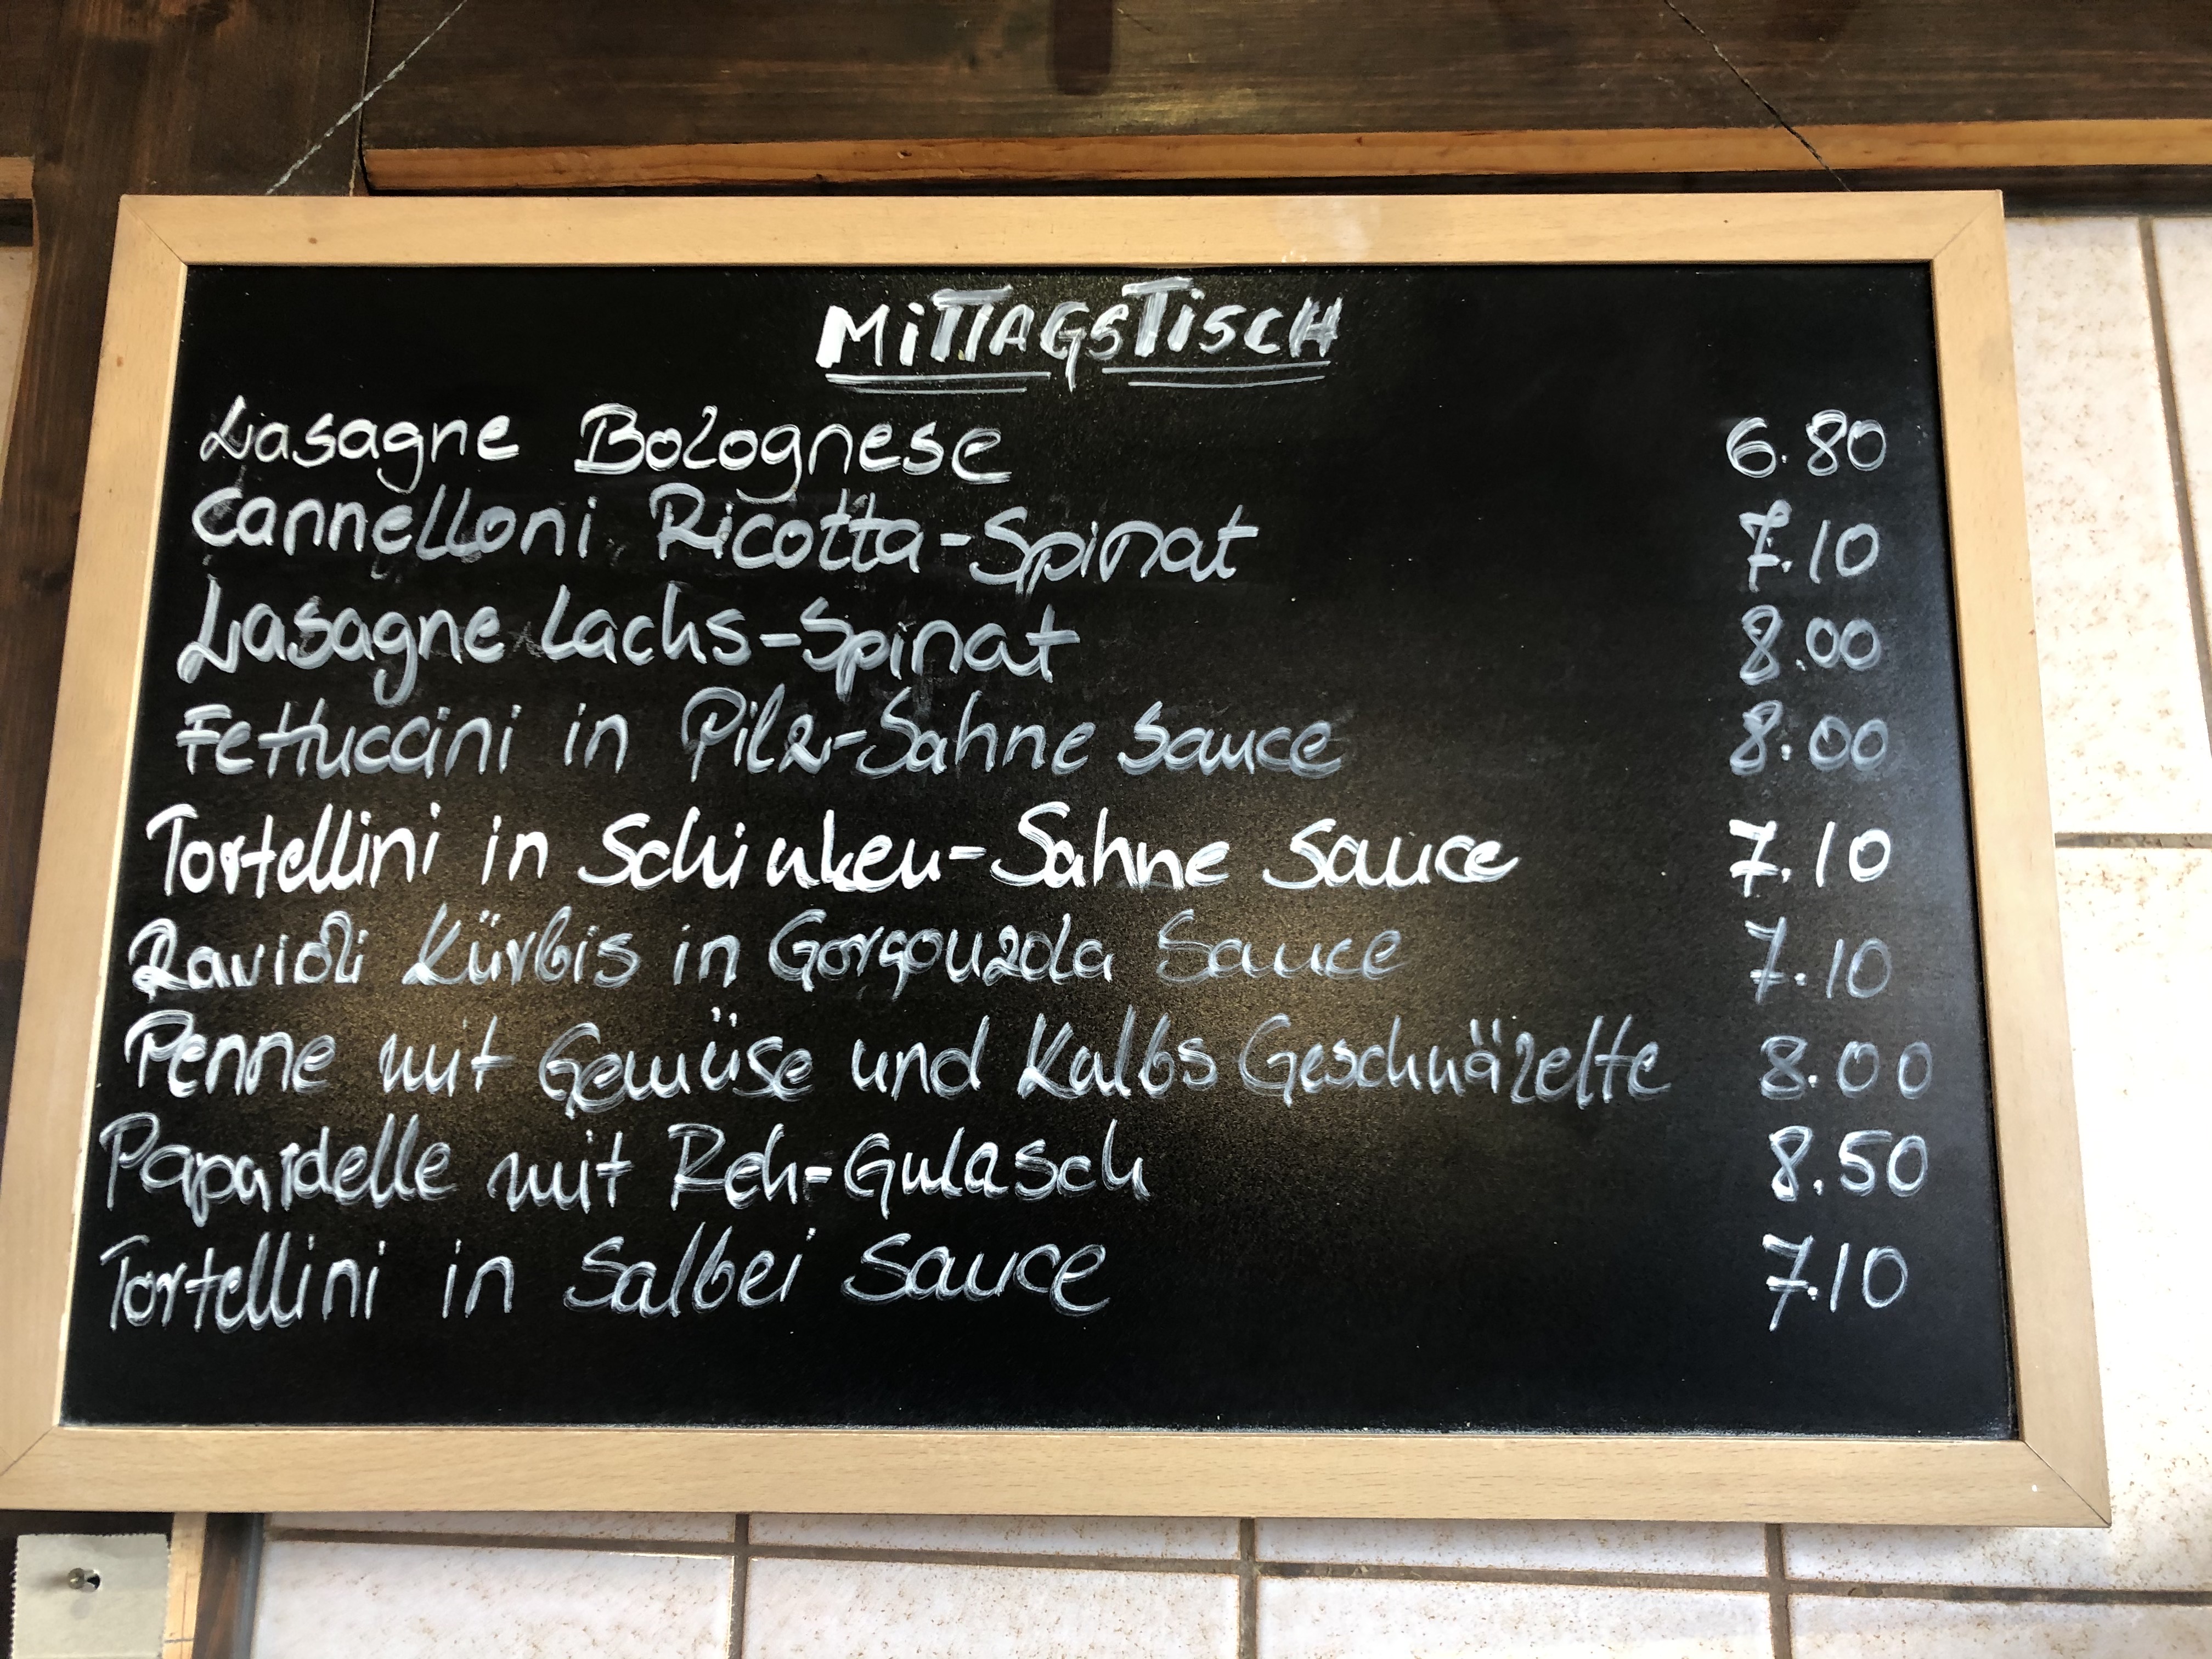 MiTTAGSTiSCH
Lasagne Bolognese 6.80
Cannelloni Ricotta-Spinat 7.10
Lasagne Lachs-Spinat 8.00
Fettuccini in Pilz-Sahne Sauce 8.00
Tortellini in Schinken-Sahne Sauce 7.10
Ravioli Kürbis in Gorgonzola Sauce 7.10
Penne mit Gemüse und Kalbs Geschnäzelte 8.00
Papardelle mit Reh-Gulasch 8.50
Tortellini in Salbei Sauce 7.10